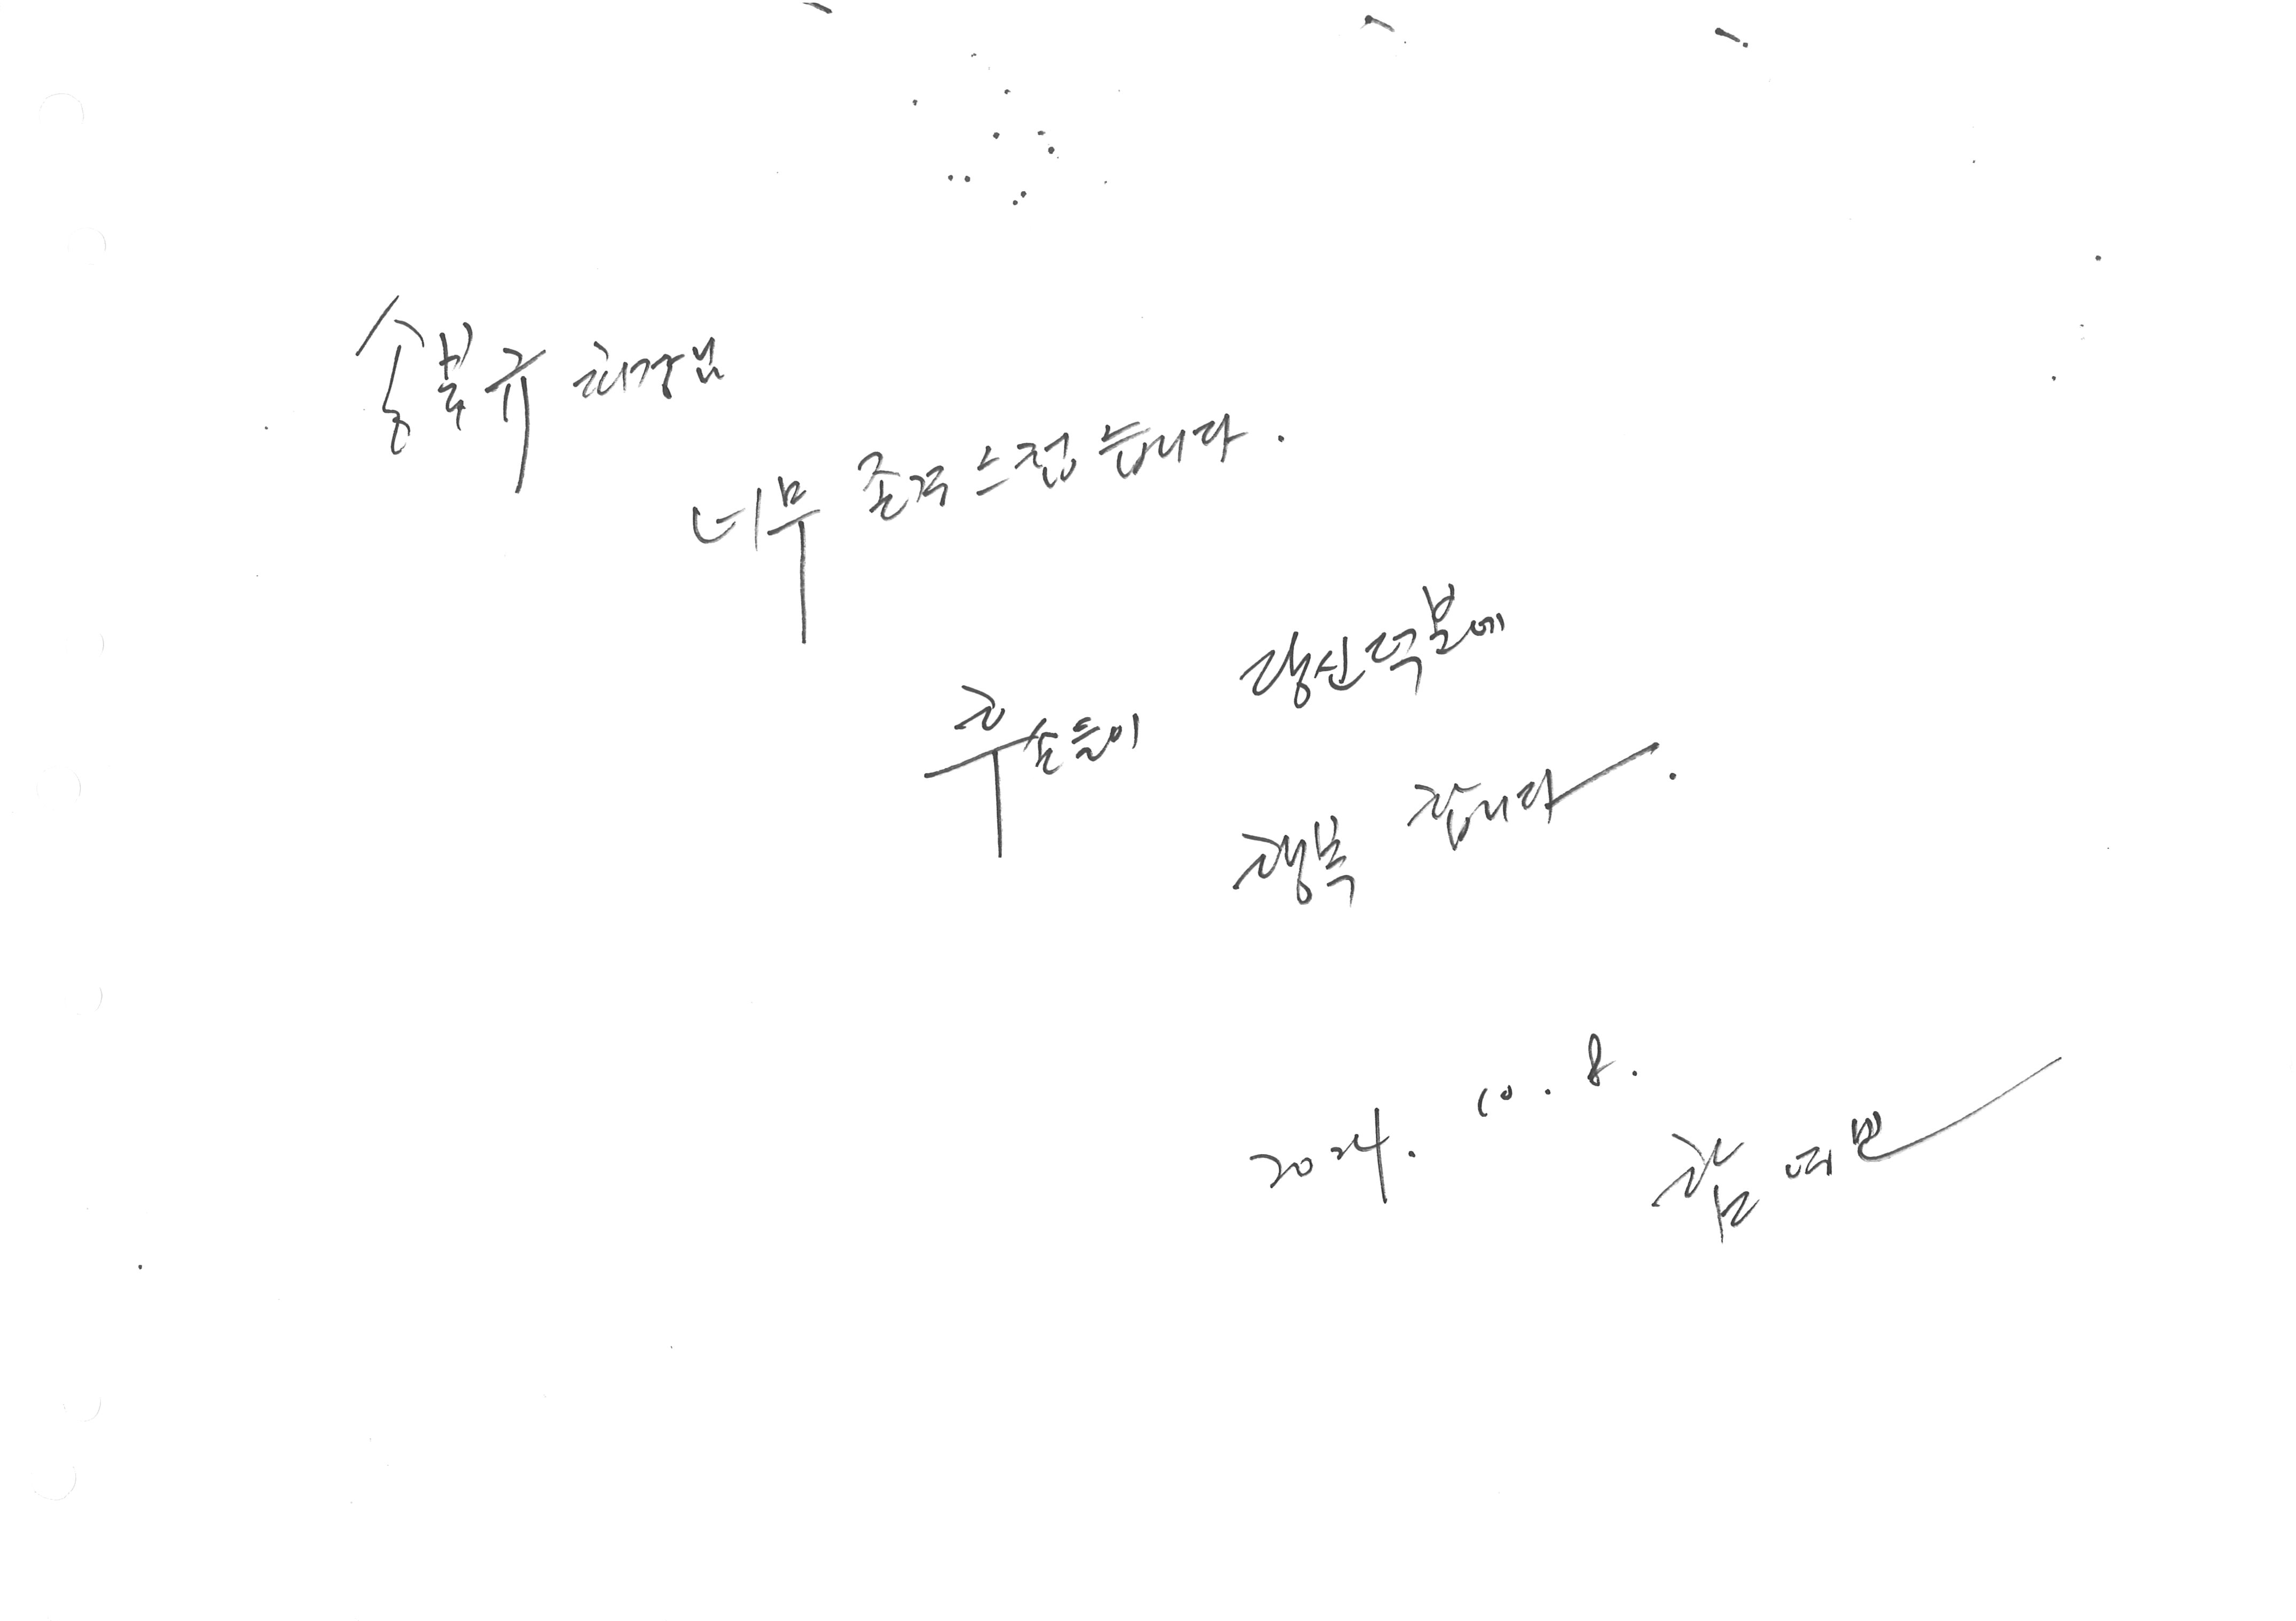 송봉규 회장님
너무 존경스럽습니다.
후손들이 당신덕분에
행복 합니다.
2024. 10. 8.